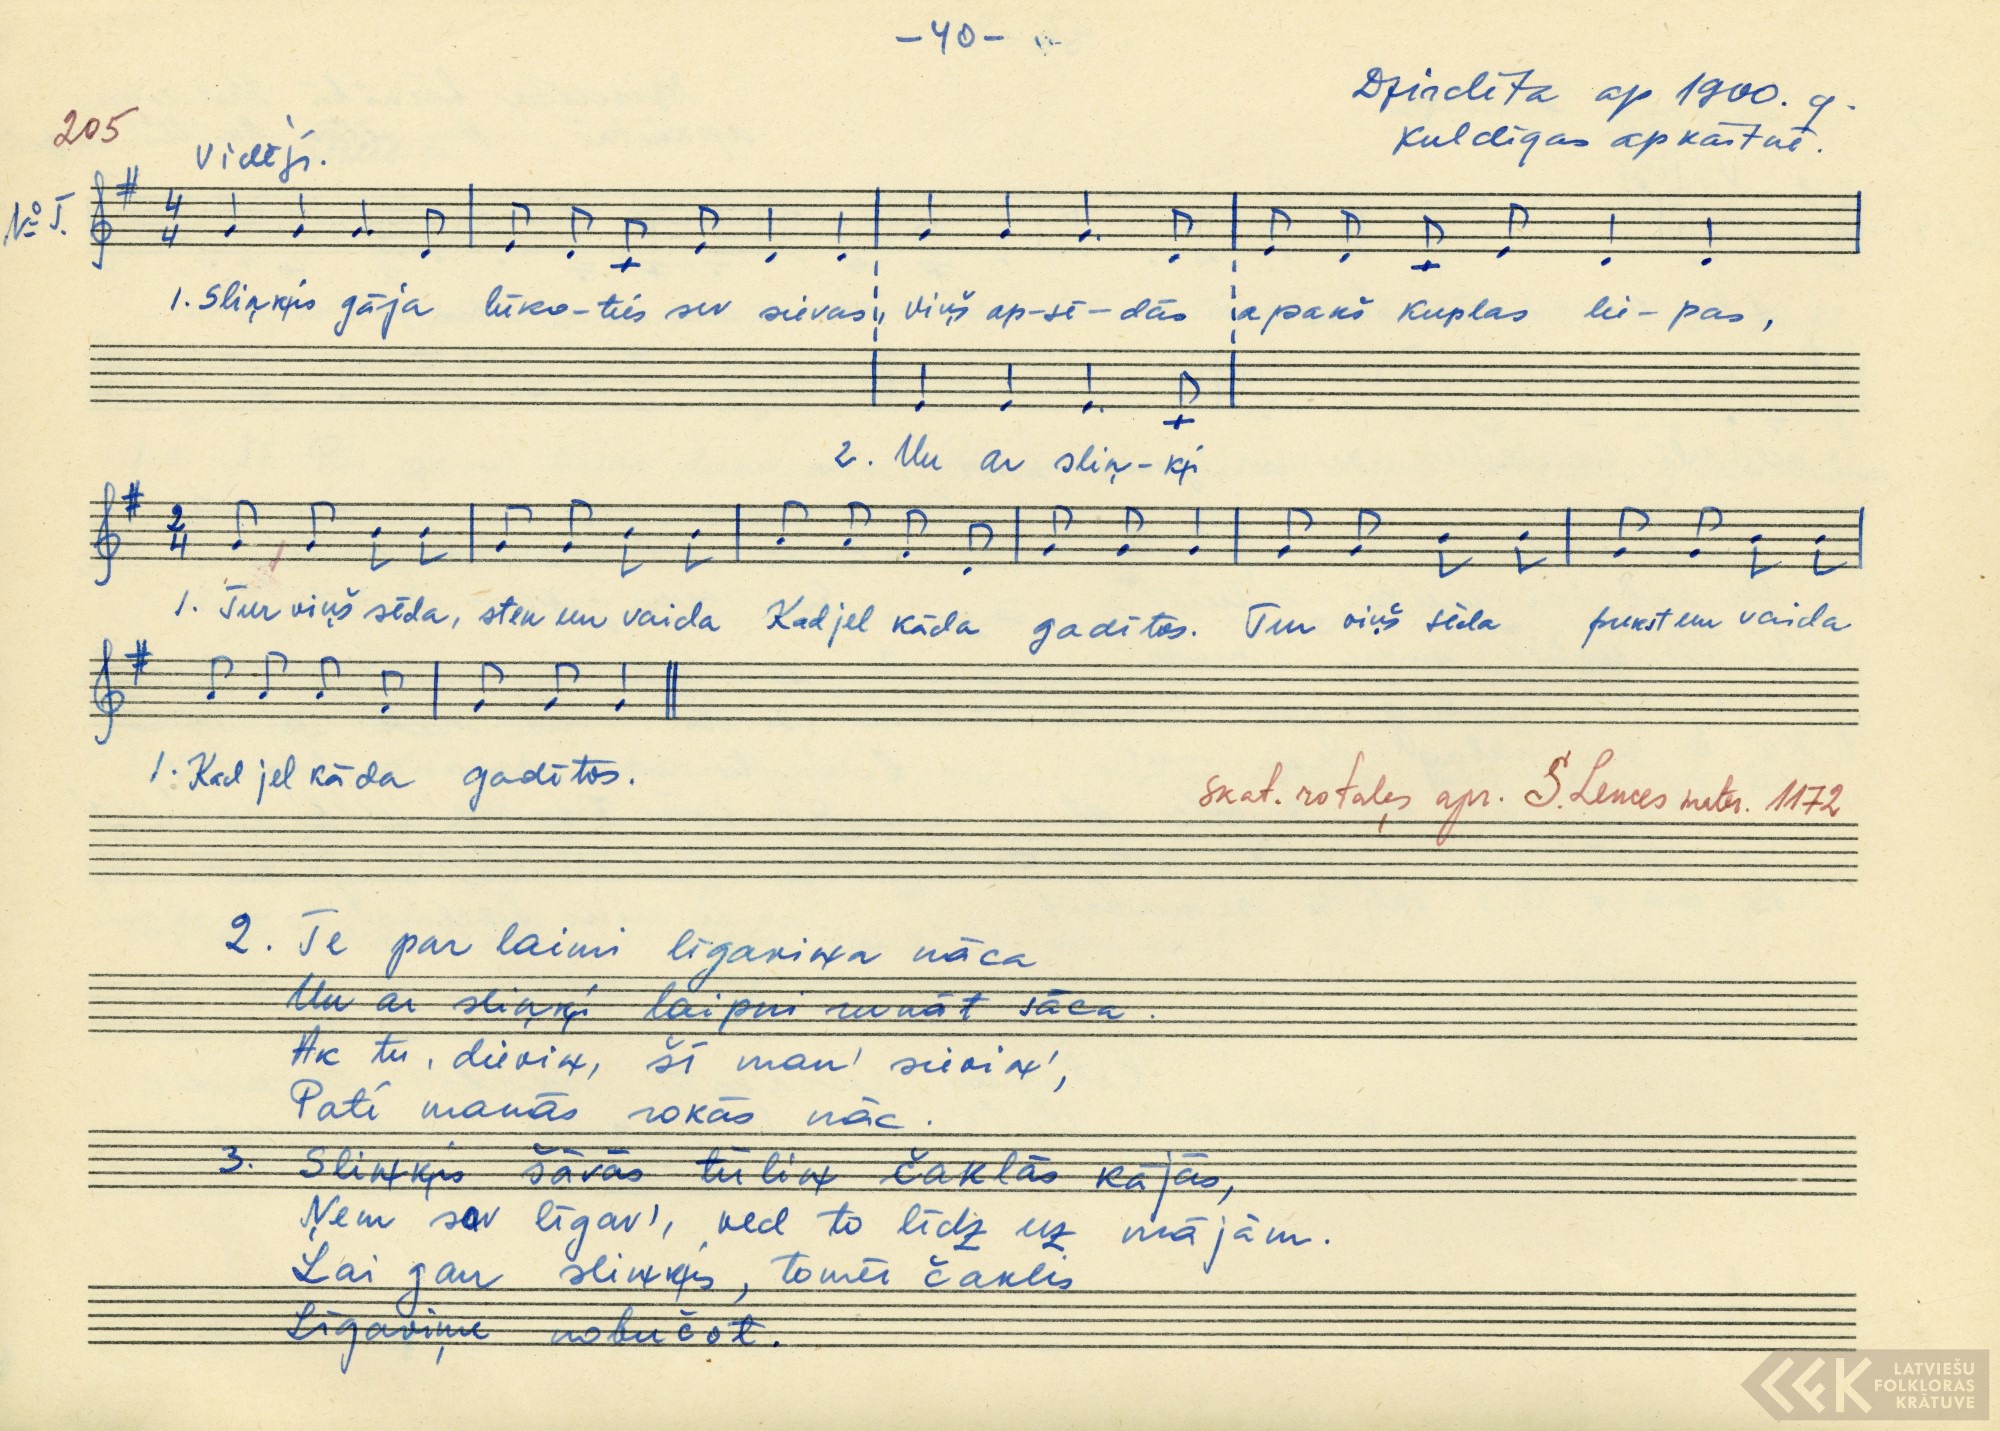 -40-
Dzirdēta ap 1900. g.
Kuldīgas apkārtnē.
205
Vidēji.
№ I.
4
4
1. Sliņķis gāja lūko-ties sev sievas, viņš ap-sē-dās apakš kuplas lie-pas,
2. Un ar sliņ-ķi
2
4
1. Tur viņš sēda, sten un vaida Kad jel kāda gadītos. Tur viņš sēda pukst un vaida
1. Kad jel kāda gadītos.
skat. rotaļas apr. S. Lences mater. 1172
2. Te par laimi līgaviņa nāca
Un ar sliņķi laipni runāt sāca.
Ak tu, dieviņ, šī man' sieviņ',
Pati manās rokās nāc.
3. Sliņķis šāvās tūliņ čaklās kājās,
Ņem sev līgav', ved to līdz uz mājām.
Lai gan sliņķis, tomēr čaklis
Līgaviņu nobučot.
LATVIEŠU
FOLKLORAS
KRĀTUVE